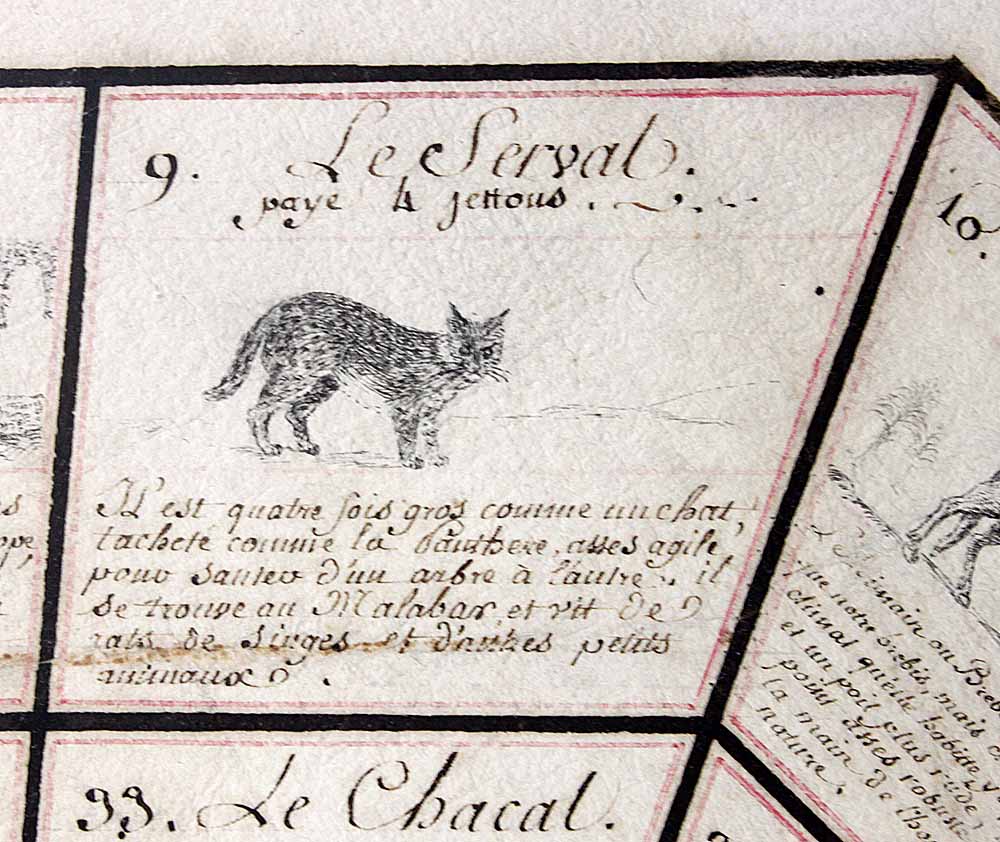 9. Le Serval.
paye 4 jettons.
Il est quatre fois gros comme un chat,
tacheté comme la Panthere, asses agile
pour sauter d'un arbre à l'autre, il
se trouve au Malabar, et vit de
rats de Singes et d'autres petits
animaux.
10.
main ou Breb
que notre brebis, mais
climat qu'elle habite
et un poil plus rude,
point asses robuste
la main de l'ho
nature.
33. Le Chacal.